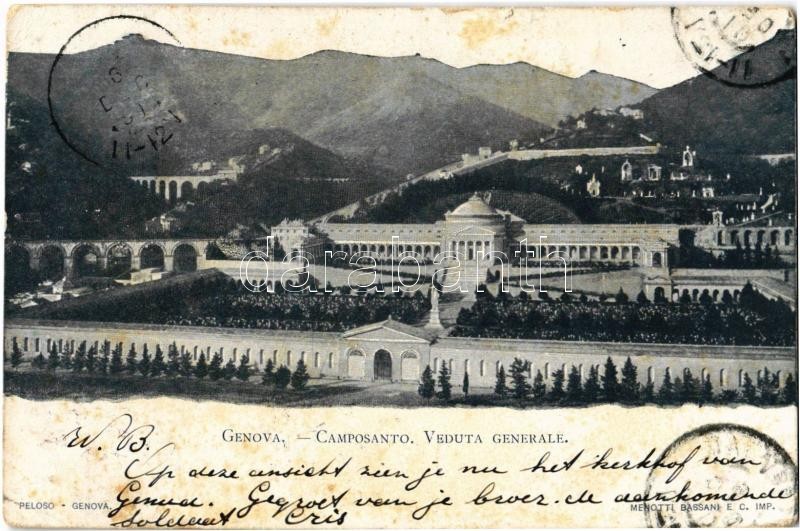 GENOVA. — CAMPOSANTO. VEDUTA GENERALE.
W. B.
Op deze ansicht zien je nu het kerkhof van
Genua. Gegroet van je broer. de aankomende
soldaat Cris
PELOSO - GENOVA.
MENOTTI BASSANI E C. IMP.
darabanth